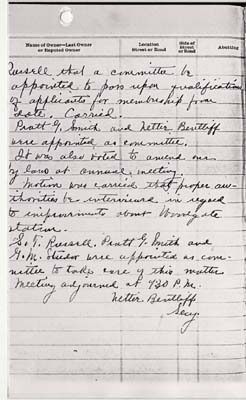 Name of Owner—Last Owner or Reputed Owner
Location Street or Road
Side of Street or Road
Abutting
Russell that a committee be
appointed to pass upon qualifications
of applicants for membership from
date. Carried.
Pratt G. Smith and Netter Bentliff
were appointed as committee.
It was also voted to amend our
by laws at annual meeting.
Motion was carried that proper au-
thorities be interviewed in regard
to improvements about
station.
S. T. Russell, Pratt G. Smith and
G. M. were appointed as com-
mittee to take care of this matter
Meeting adjourned at 930 P.M.
Netter Bentliff
Secy.